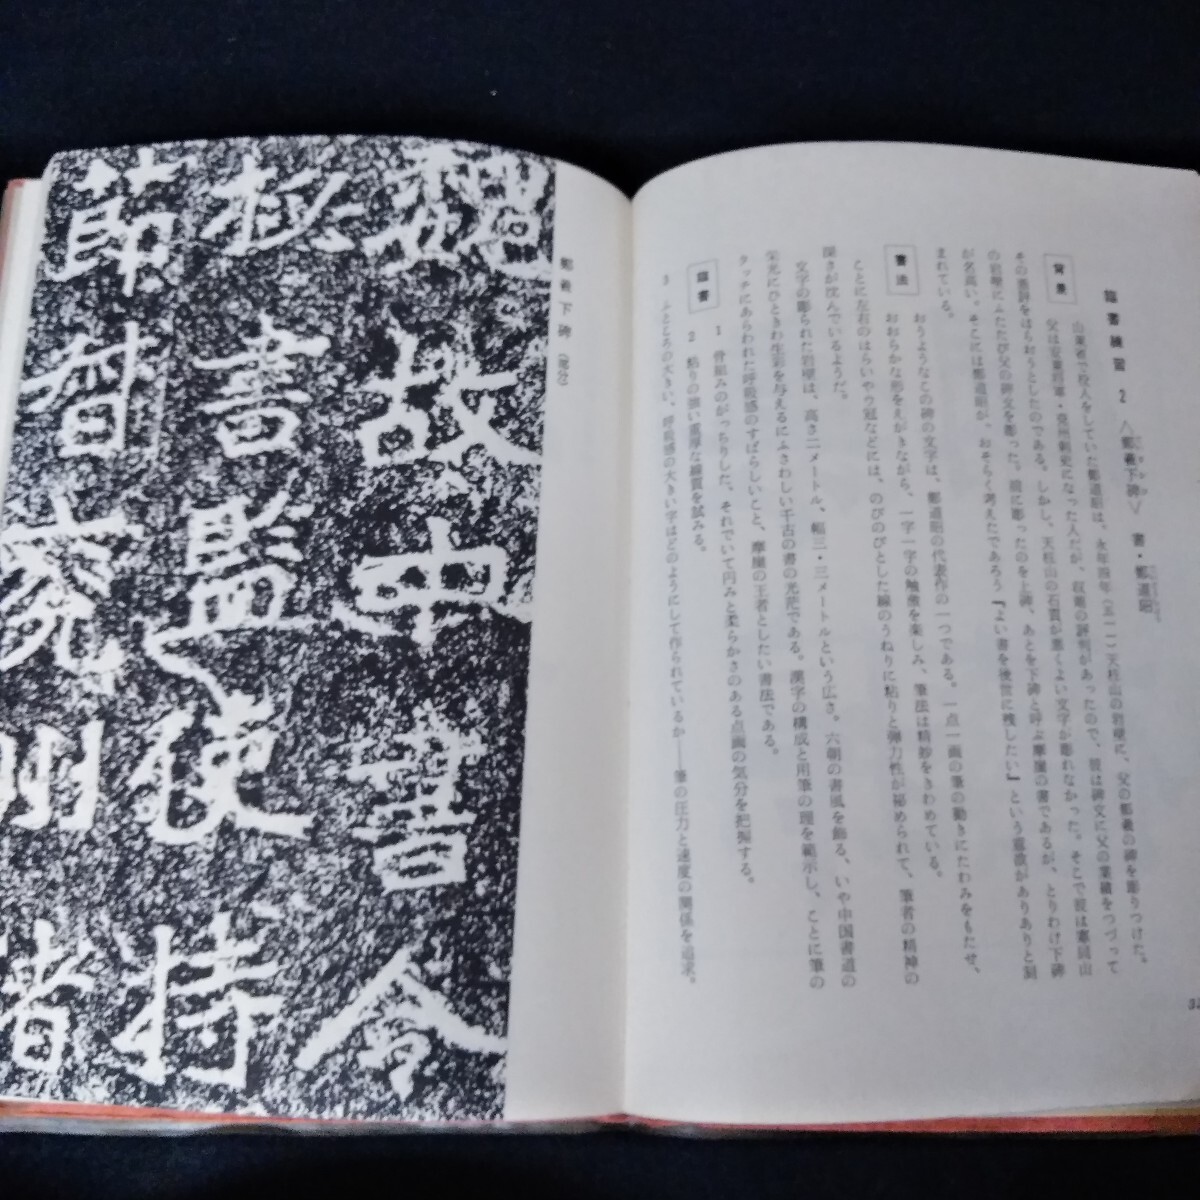 臨書練習 2 〈鄭羲下碑〉 書・鄭道昭
背景
山東省で役人をしていた鄭道昭は、永平四年(五一一)天柱山の岩壁に、父の鄭羲の碑を彫りつけた。
父は安東将軍・兗州刺史になった人だが、収賄の評判があったので、彼は碑文に父の業績をつづって
その悪評をはらおうとしたのである。しかし、天柱山の石質が悪くよい文字が彫れなかった。そこで彼は雲峰山
の岩壁にふたたび父の碑文を彫った。前に彫ったのを上碑、あとを下碑と呼ぶ摩崖の書であるが、とりわけ下碑
が名高い。そこには鄭道昭が、おそらく考えたであろう『よい書を後世に残したい』という意欲がありありと刻
まれている。
書法
おりようなこの碑の文字は、鄭道昭の代表作の一つである。一点一画の筆の動きにたわみをもたせ、
おおらかな形をえがきながら、一字一字の触覚を楽しみ、筆法は精妙をきわめている。
ことに左右のはらいや冠などには、のびのびとした線のうねりに粘りと弾力性が秘められて、筆者の精神の
深さが沈んでいるようだ。
文字の彫られた岩壁は、高さ二メートル、幅三・三メートルという広さ。六朝の書風を飾る、いや中国書道の
栄光にひときわ生彩を与えるにふさわしい千古の書の光茫である。漢字の構成と用筆の理を範示し、ことに筆の
タッチにあらわれた呼吸感のすばらしいこと、摩崖の王者としたい書法である。
臨書
1 骨組みのがっちりした、それでいて円みと柔らかさのある点画の気分を把握する。
2 粘りの強い重厚な線質を試みる。
3 ふところの大きい、呼吸感の大きい字はどのようにして作られているか——筆の圧力と速度の関係を追求。
鄭羲下碑 (部分)
魏故中書令
秘書監使持
節督兗州諸